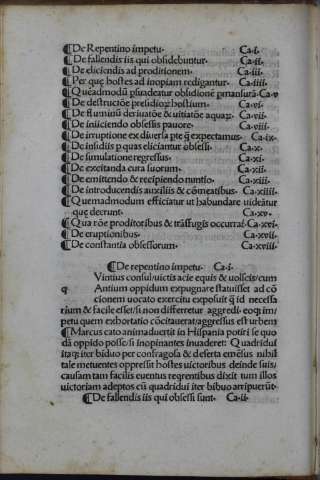 ¶De Repentino impetu. Ca.i.
¶De fallendis iis qui obsidebuntur. Ca.ii.
¶De eliciendis ad proditionem. Ca.iii.
¶Per quę hostes ad inopiam redigantur. Ca.iiii.
¶Quẽadmodũ psuadeatur obsidionẽ pmansurã. Ca.v
¶De destructiõe presidioꝝ hostium. Ca.vi.
¶De fluminũ deriuatõe & uitiatõe aquaꝝ. Ca.vii.
¶De iniiciendo obsessis pauore. Ca.viii.
¶De irruptione ex diuersa pte ꝗ̃ expectamus. Ca.ix.
¶De insidiis p quas eliciantur obsessi. Ca.x.
¶De simulatione regressus. Ca.xi.
¶De excitanda cura suorum. Ca.xii.
¶De emittendo & recipiendo nuntio. Ca.xiii.
¶De introducendis auxiliis & cõmeatibus. Ca.xiiii.
¶Quemadmodum efficiatur ut habundare uideãtur
quę deerunt. Ca.xv.
¶Qua rõe proditoribus & trãsfugis occurrat. Ca.xvi.
¶De eruptionibus. Ca.xvii.
¶De constantia obsessorum. Ca.xviii.
¶De repentino impetu. Ca.i.
Vintius consul, uictis acie equis & uolscis, cum
q Antium oppidum expugnare statuisset ad cõ
cionem uocato exercitu exposuit ꝗ̃ id necessa
rium & facile esset, si non differretur aggredi. eoꝗ; im
petu quem exhortatio cõcitauerat, aggressus est urbem
¶Marcus cato animaduertit in Hispania potiri se quo
dã oppido posse, si inopinantes inuaderet: Quadridui
itaꝗ; iter biduo per confragosa & deserta emẽsus nihil
tale metuentes oppressit hostes uictoribus deinde suis,
causam tam facilis euentus reqrentibus dixit tum illos
uictoriam adeptos cũ quadridui iter biduo arripuerũt.
¶De fallendis iis qui obsessi sunt. Ca.ii.